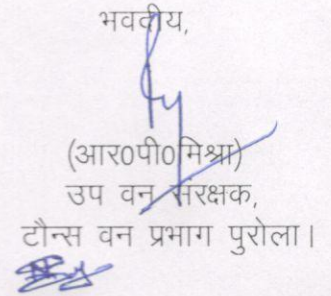 भवदीय,
(आर0पी0मिश्रा)
उप वन संरक्षक,
टौन्स वन प्रभाग पुरोला।